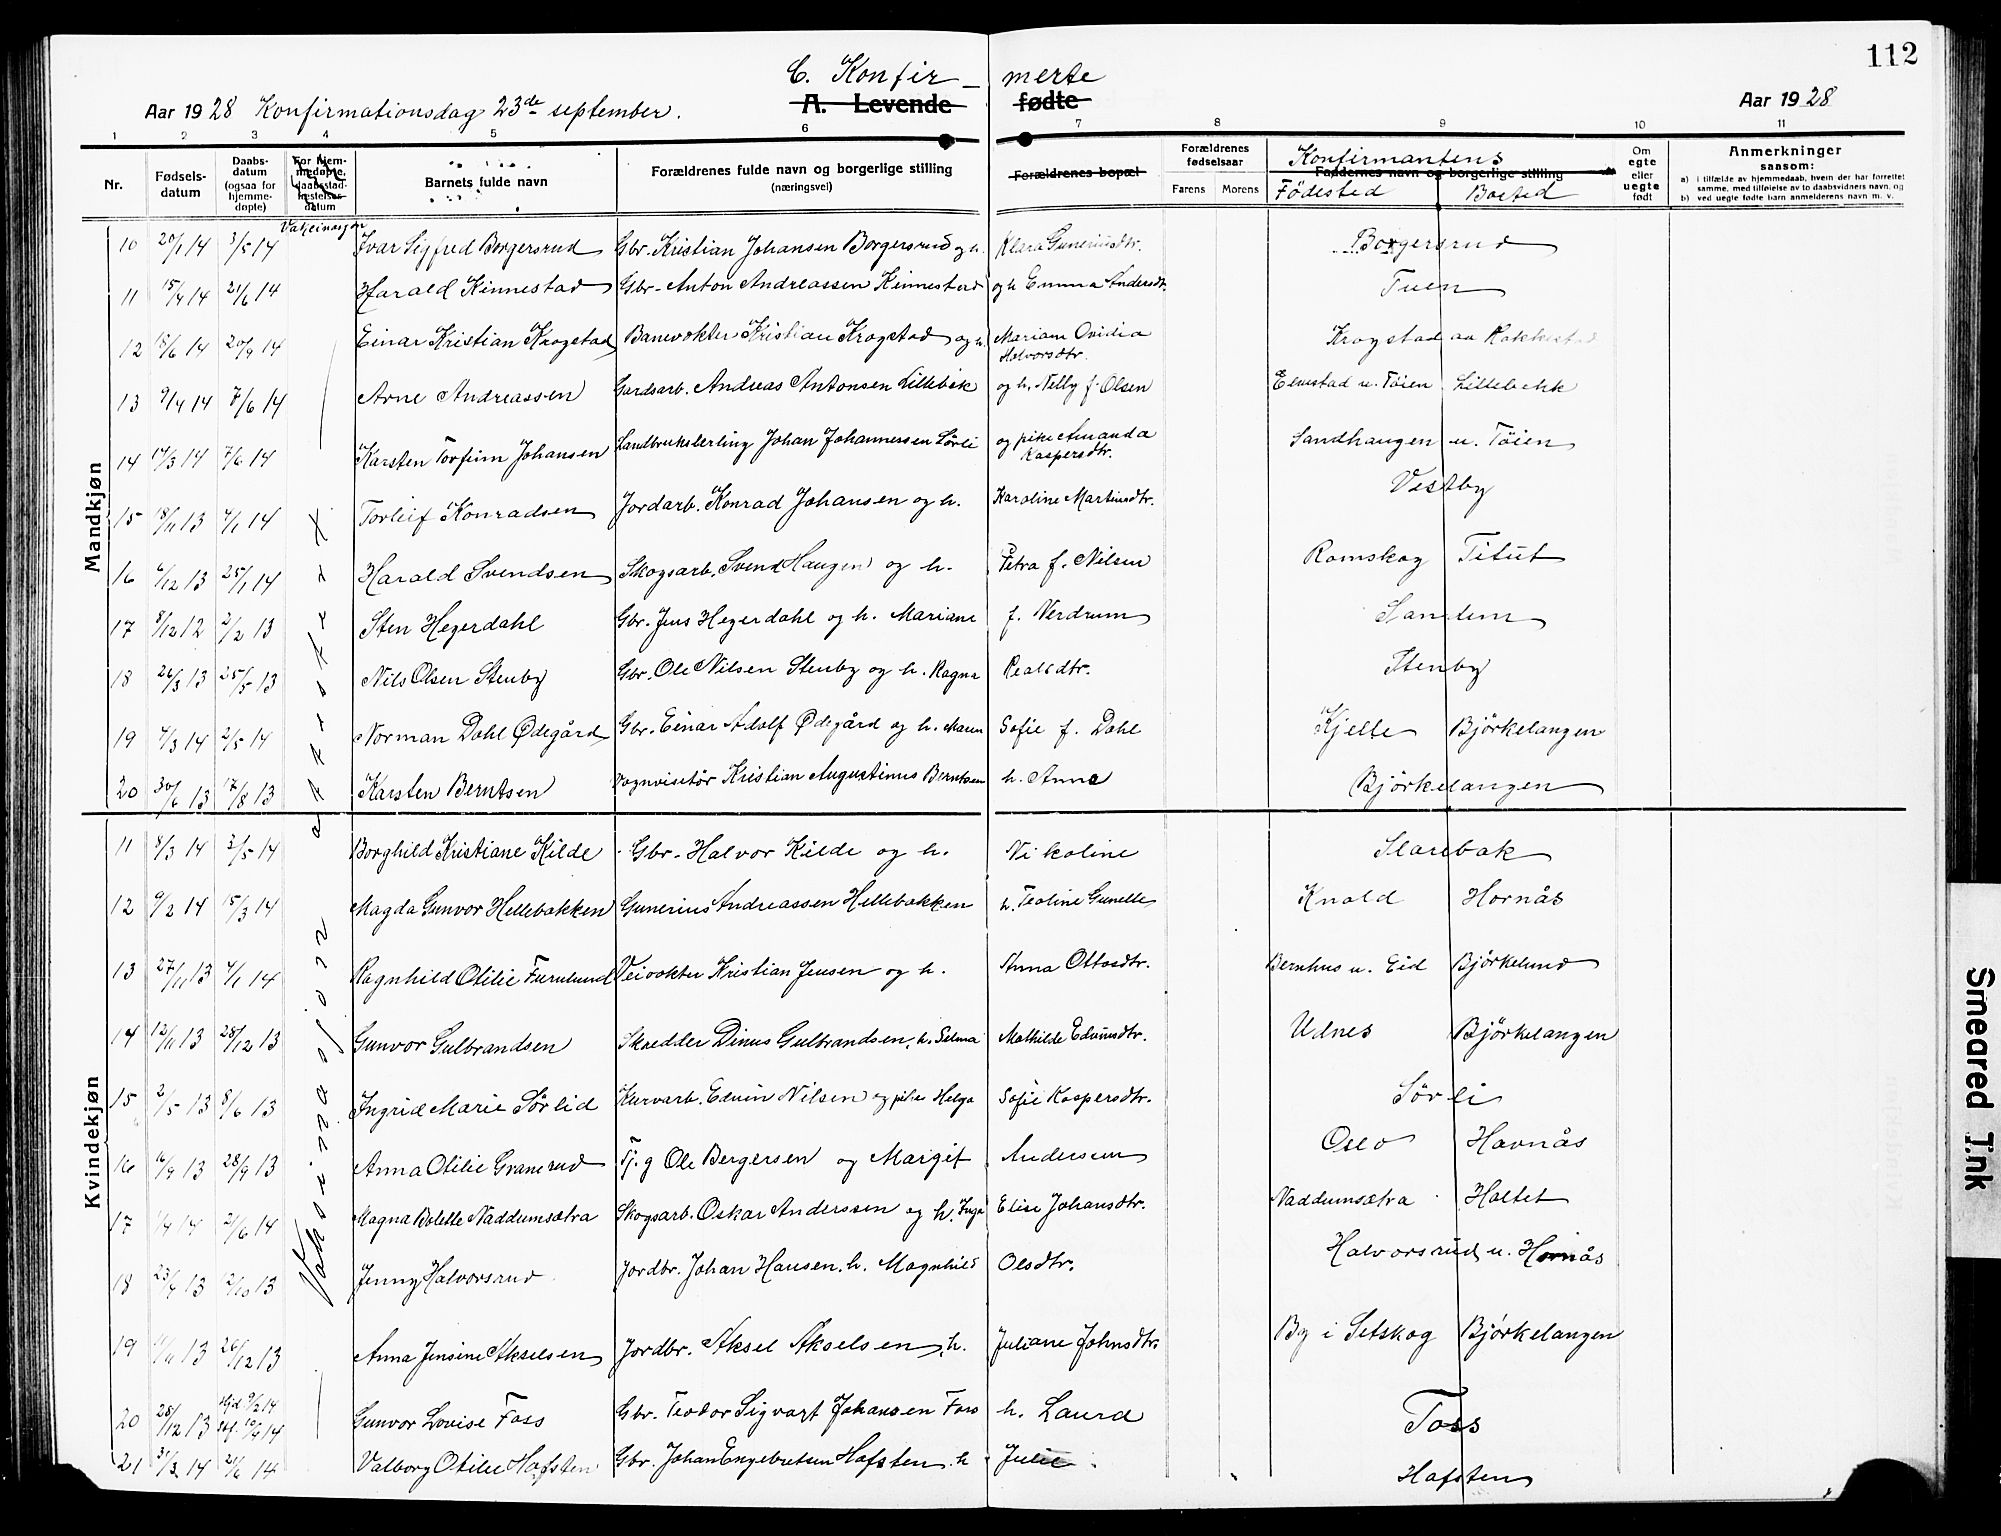 112
C. Konfir- merte
Aar 1928 Konfirmationsdag 23de september. A. Levende fødte Aar 1928
1 2 3 4 5 6 7 8 9 10 11
Nr. Fødsels-datum Daabs-datum (ogsaa for hjemme-døpte) For hjem-medøpte, daabsstad-festelses-datum Barnets fulde navn Forældrenes fulde navn og borgerlige stilling (næringsvei) Forældrenes bopæl Forældrenes fødselsaar Farens Morens Konfirmantens Faddernes navn og borgerlige stilling Födested Bosted Om egte eller uegte født Anmerkninger saasom: a) i tilfælde av hjemmedaab, hvem der har forrettet samme, med tilføielse av to daabsvidners navn, og b) ved uegte fødte barn anmelderens navn m. v.
Vakcinasjon
Mandkjøn
10 20/1 14 3/5 14 Ivar Sigfred Borgersrud Gbr. Kristian Johansen Borgersrud og h. Klara Guneriusdtr. Borgersrud
11 15/4 14 21/6 14 Harald Kinnestad Gbr. Anton Andreassen Kinnestad og h Emma Andersdtr. Tuen
12 18/6 14 20/9 14 Einar Kristian Krogstad Banevokter Kristian Krogstad og h. Mariane Ovidia Halvorsdtr. Krogstad av Rakkestad
13 9/4 14 7/6 14 Arne Andreassen Gardsarb. Andreas Antonsen Lillebæk og h. Nelly f. Olsen Elmstad u. Töien Lillebekk
14 14/3 14 7/6 14 Karsten Torfinn Johansen Landbrukslerling Johan Johannessen Sörli og pike Amanda Kaspersdtr. Sandhaugen u. Töien
15 18/11 13 4/1 14 Torleif Konradsen Jordarb. Konrad Johansen og h. Karoline Martinsdtr. Vestby
16 6/12 13 25/1 14 Harald Svendsen Skogsarb. Svend Haugen og h. Petra f. Nilsen Romskog Titut
17 8/12 12 2/2 13 Sten Hegerdahl Gbr. Jens Hegerdahl og h. Mariane f. Verdrum Sandem
18 26/3 13 25/5 13 Nils Olsen Stenby Gbr. Ole Nilsen Stenby og h. Ragna Realsdtr. Stenby
19 4/3 14 2/5 14 Norman Dahl Ødegård Gbr. Einar Adolf Ødegård og h. Maren Sofie f. Dahl Kjelle Björkelangen
20 30/6 13 17/8 13 Karsten Berntsen Vognvisitör Kristian Augustinus Berntsen h. Anna Björkelangen
Kvindekjøn
Vaksinasjon
11 8/3 14 3/5 14 Borghild Kristiane Kilde Gbr. Halvor Kilde og h. Nikoline Slorebak
12 9/2 14 15/3 14 Magda Gunvor Hellebakken Gunerius Andreassen Hellebakken h. Teoline Gunelle Knold Hornås
13 27/11 13 4/1 14 Ragnhild Otilie Furulund Veivokter Kristian Jensen og h. Anna Ottosdtr. Bernhus u. Eid Björkelund
14 12/11 13 28/12 13 Gunvor Gulbrandsen Skredder Dinus Gulbrandsen, h. Selma Mathilde Edvinsdtr. Udnes Björkelangen
15 2/5 13 8/6 13 Ingrid Marie Sørlid Kurvarb. Edvin Nilsen og pike Helga Sofie Kaspersdtr. Sørli
16 6/9 13 28/9 13 Anna Otilie Granerud Tj. g Ole Bergersen og Margit Andersen Oslo Havnås
17 1/4 14 21/6 14 Magna Bolette Naddumsætra Skogsarb. Oskar Anderssen og h. Inga Elise Johansdtr. Naddumsætra Holtet
18 23/7 13 12/10 13 Jenny Halvorsrud Jordbr. Johan Hansen. h. Magnhild Olsdtr. Halvorsrud u. Hornås
19 11/11 13 26/12 13 Anna Jensine Akselsen Jordbr. Aksel Akselsen, h. Juliane Johnsdtr. By i Setskog Björkelangen
20 28/12 13 Hjd 9/2 14 Gunvor Lovise Foss Gbr. Teodor Sigvart Johansen Foss h. Laura Foss
21 31/3 14 21/6 14 Valborg Otilie Hafsten Gbr. Johan Engebretsen Hafsten h Julie Hafsten
Smeared Ink